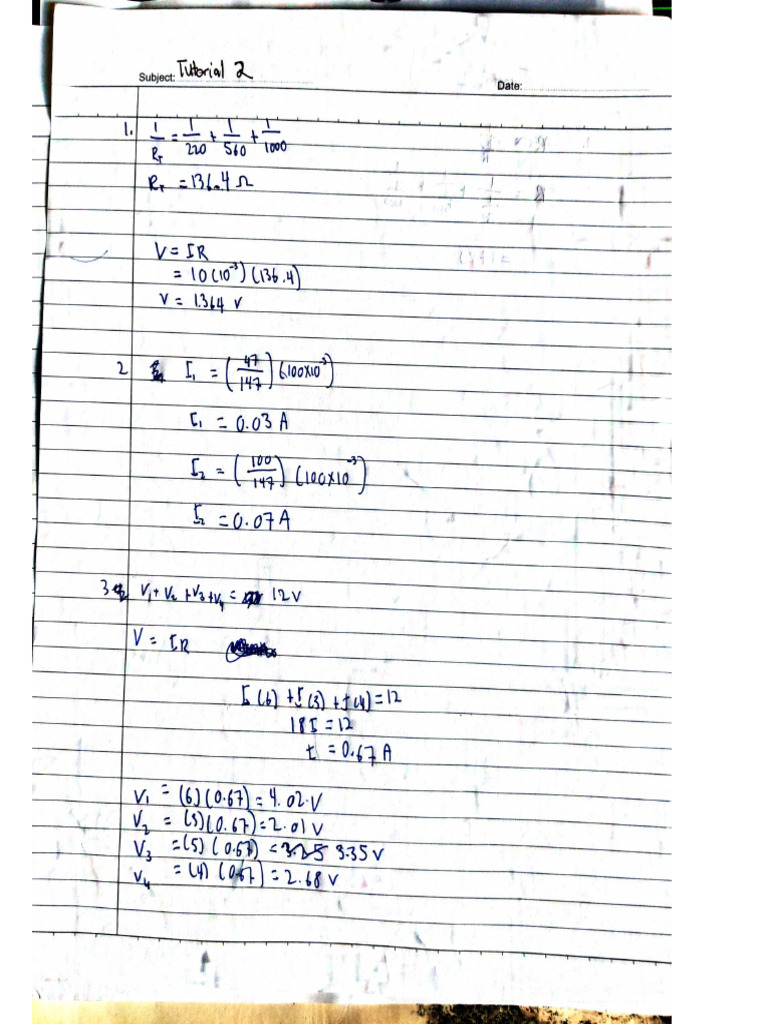 Subject: Tutorial 2 Date:
1. 1/R_T = 1/220 + 1/560 + 1/1000
R_T = 136.4 Ω
V = IR
= 10(10⁻³)(136.4)
V = 1.364 V
2 I₁ = (47/147)(100×10⁻³)
I₁ = 0.03 A
I₂ = (100/147)(100×10⁻³)
I₂ = 0.07A
3 V₁ + V₂ + V₃ + V₄ = 12V
V = IR
I(6) + I(3) + I(4) = 12
18I = 12
I = 0.67 A
V₁ = (6)(0.67) = 4.02 V
V₂ = (3)(0.67) = 2.01 V
V₃ = (5)(0.67) = 3.35 V
V₄ = (4)(0.67) = 2.68 V